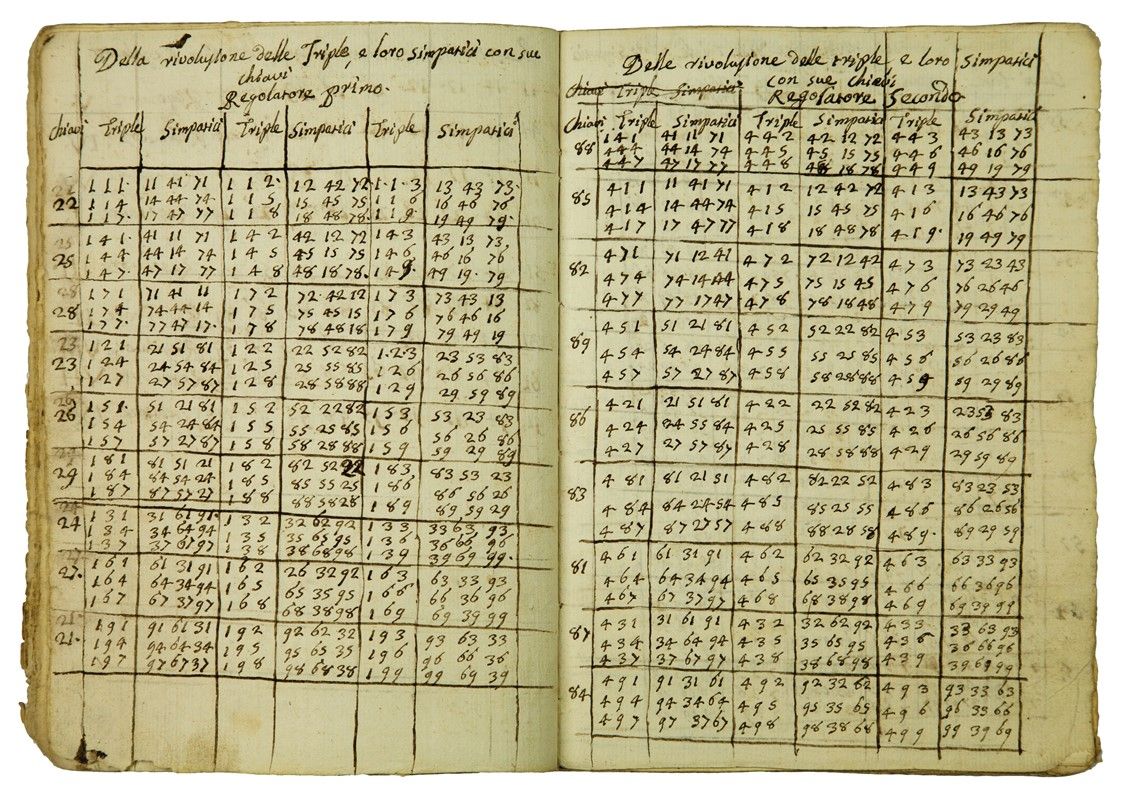 Della rivolusione delle Triple, e loro simpatici con sue
chiavi
Regolatore primo.
chiavi Triple Simpatici Triple Simpatici Triple Simpatici
22 111. 11 41 71 112. 12 42 72 1.1.3 13 43 73.
114 14 44 74. 115 15 45 75 116 16 46 76
117. 17 47 77 118 18 48 78. 119. 19 49 79.
25 141. 41 11 71 142 42 12 72 143 43 13 73,
144 44 14 74 145 45 15 75 146 46 16 76
147. 47 17 77 148 48 18 78. 149. 49 19. 79
28 171 71 41 11 172 72. 42 12 173 73 43 13
174 74 44 14 175 75 45 15 176 76 46 16
177. 77 47 17. 178 78 48 18 179 79 49 19
23 121 21 51 81 122 22 52 82 1.2.3 23 53 83
124 24 54 84 125 25 55 85 126 26 56 86
127 27 57 87 128 28 58 88 129 29 59 89
26 151. 51 21 81 152 52 22 82 153 53 23 83
154 54 24 84 155 55 25 85 156 56 26 86
157 57 27 87 158 58 28 88 159 59 29 89
29 181 81 51 21 182 82 52 22 183 83 53 23
184 84 54 24 185 85 55 25 186 86 56 26
187 87 57 27 188 88 58 28 189 89 59 29
24 131 31 61 91. 132 32 62 92 133 33 63 93
134 34 64 94 135 35 65 95 136 36 66 96
137 37 67 97 138 38 68 98 139 39 69 99.
27. 161 61 31 91 162 26 32 92 163 63 33 93
164 64 34 94 165 65 35 95 166 66 36 96
167 67 37 97 168 68 38 98 169 69 39 99
21. 191 91 61 31 192 92 62 32 193 93 63 33
194 94 64 34 195 95 65 35 196 96 66 36
197 97 67 37 198 98 68 38 199 99 69 39
Delle rivolusione delle triple, e loro Simpatici
con sue chiavi
chiavi Triple Simpatici Regolatore Secondo
Chiavi Triple Simpatici Triple Simpatici Triple Simpatici
88 141 41 11 71 442 42 12 72 443 43 13 73
444 44 14 74 445 45 15 75 446 46 16 76
447 47 17 77 448 48 18 78 449 49 19 79
85 411 11 41 71 412 12 42 72 413 13 43 73
414 14 44 74 415 15 45 75 416 16 46 76
417 17 47 77 418 18 48 78 419. 19 49 79
82 471 71 12 41 472 72 12 42 473 73 23 43
474 74 14 44 475 75 15 45 476 76 26 46
477 77 17 47 478 78 18 48 479 79 29 49
89 451 51 21 81 452 52 22 82 453 53 23 83
454 54 24 84 455 55 25 85 456 56 26 86
457 57 27 87 458 58 28 88 459 59 29 89
86 421 21 51 81 422 22 52 82 423 23 53 83
424 24 55 84 425 25 55 85 426 26 56 86
427 27 57 87 428 28 58 88 429 29 59 89
83 481 81 21 51 482 82 22 52 483 83 23 53
484 84 24 54 485 85 25 55 486 86 26 56
487 87 27 57 488 88 28 58 489. 89 29 59
81 461 61 31 91 462 62 32 92 463 63 33 93
464 64 34 94 465 65 35 95 466 66 36 96
467 67 37 97 468 68 38 98 469 69 39 99
87 431 31 61 91 432 32 62 92 433 33 63 93
434 34 64 94 435 35 65 95 436 36 66 96
437 37 67 97 438 38 68 98 439 39 69 99
84 491 91 31 61 492 92 32 62 493 93 33 63
494 94 34 64 495 95 35 65 496 96 33 66
497 97 37 67 498 98 38 68 499 99 39 69